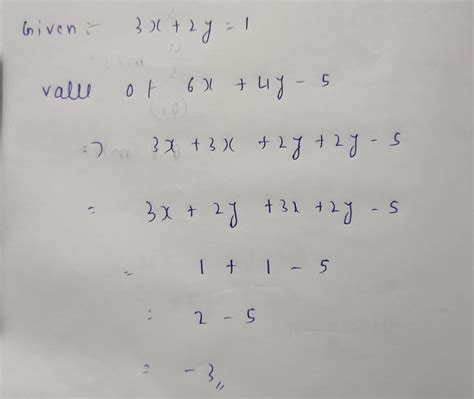 Given :- 3x + 2y = 1
value of 6x + 4y - 5
=> 3x + 3x + 2y + 2y - 5
= 3x + 2y + 3x + 2y - 5
= 1 + 1 - 5
: 2 - 5
= - 3,,